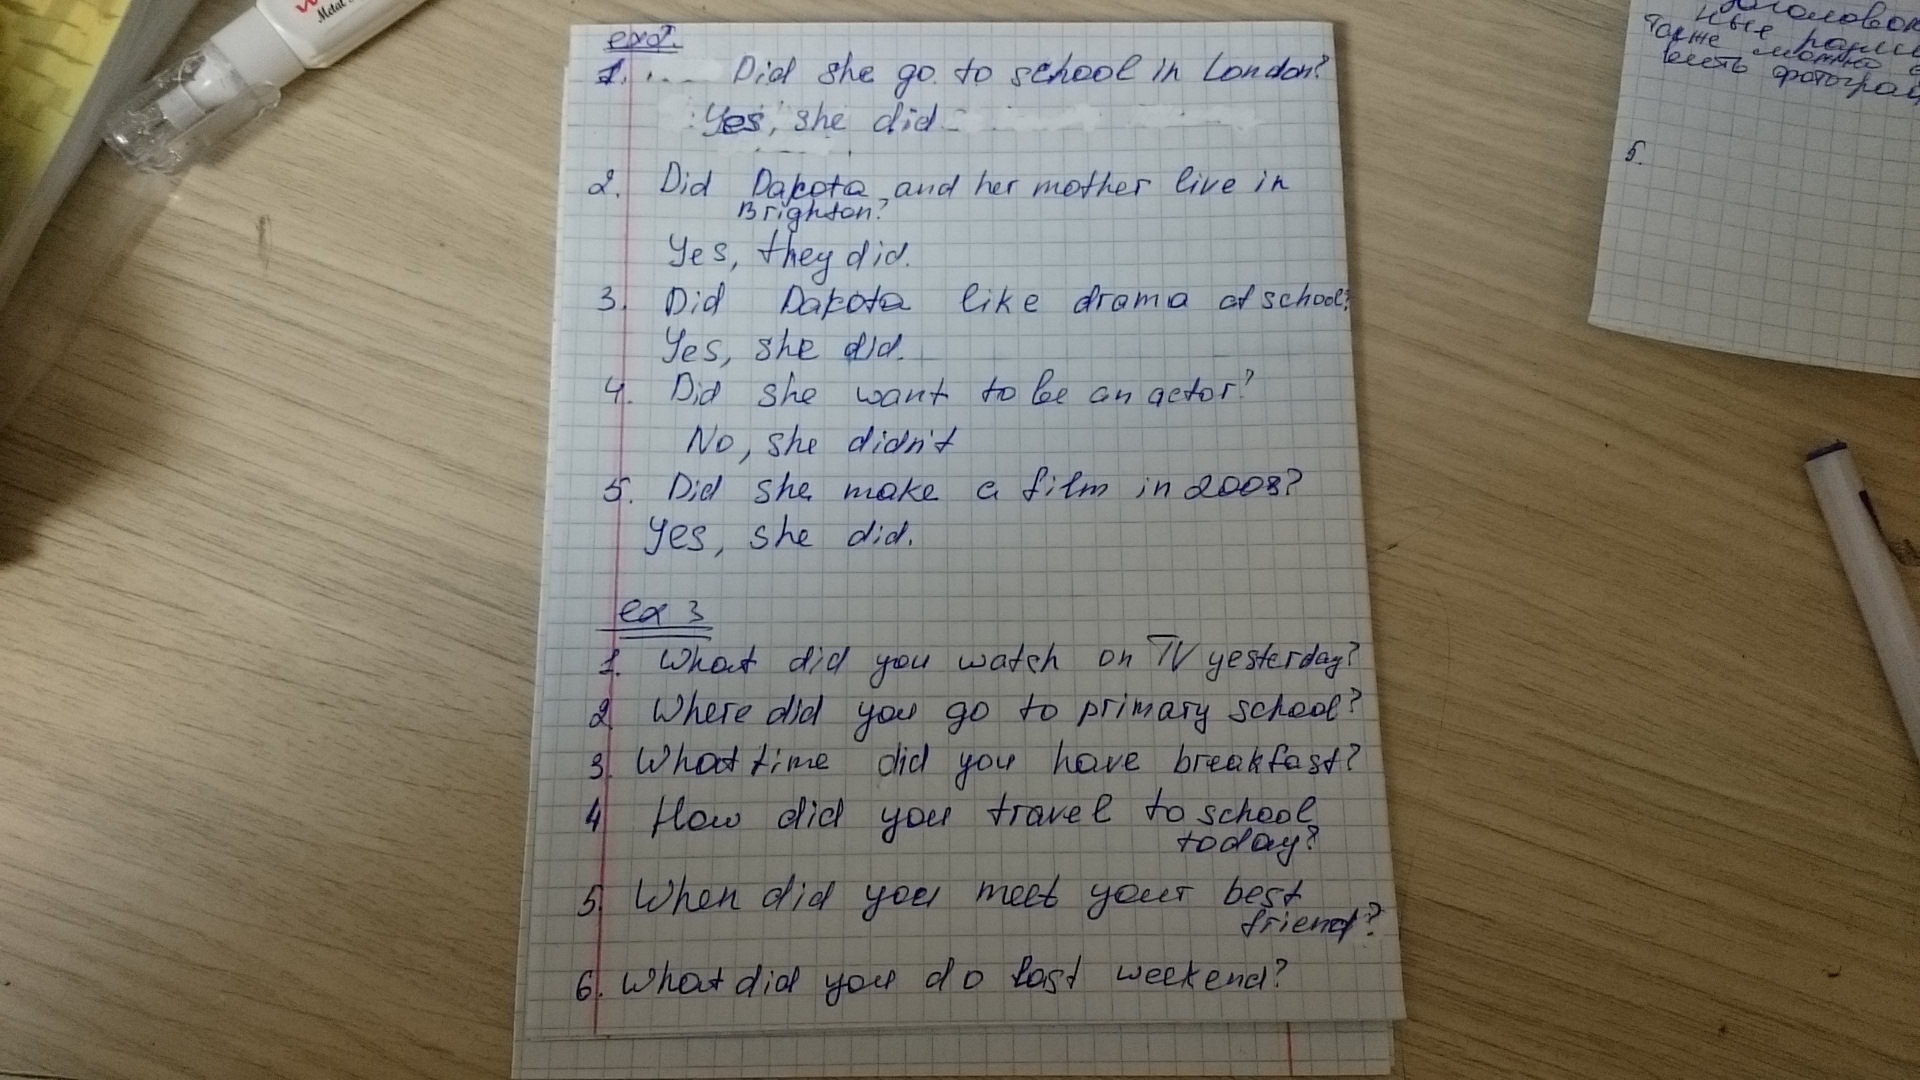 Metal
ex2.
1. Did she go to school in London?
Yes, she did
2. Did Dakota and her mother live in
Brighton?
Yes, they did.
3. Did Dakota like drama at school?
Yes, she did.
4. Did she want to be an actor?
No, she didn't
5. Did she make a film in 2008?
Yes, she did.
ex 3
1. What did you watch on TV yesterday?
2 Where did you go to primary school?
3. What time did you have breakfast?
4 How did you travel to school
today?
5. When did you meet your best
friend?
6. What did you do last weekend?
ные
также можно
5.